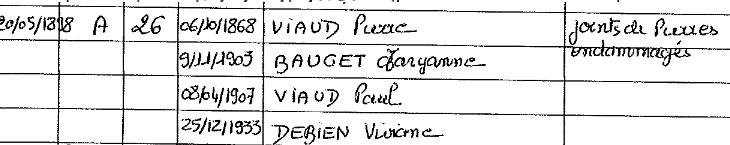 20/05/1898 A 26 06/10/1868 VIAUD Pierre joints de Pierres
endommagés
9/11/1903 BAUGET
08/04/1907 VIAUD Paul
25/12/1933 DEBIEN Viviane